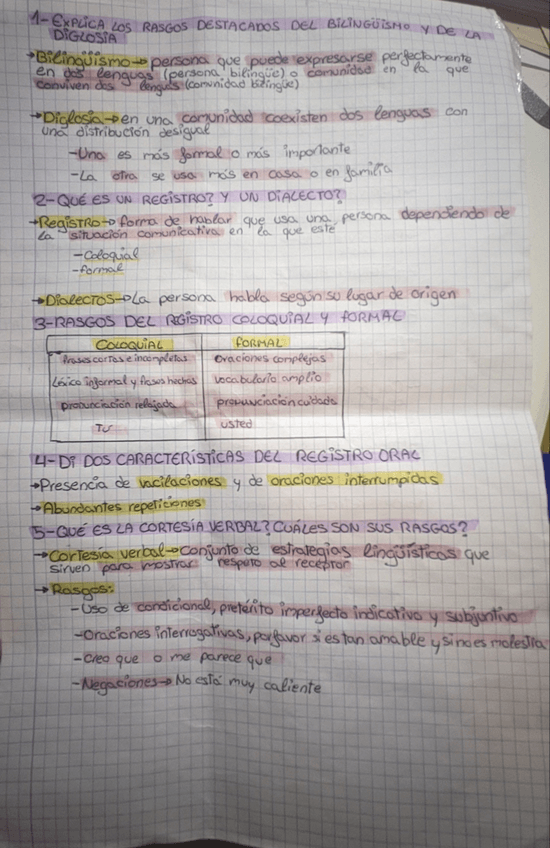 1-EXPLICA LOS RASGOS DESTACADOS DEL BILINGÜISMO Y DE LA
DIGLOSIA
→Bilingüismo→ persona que puede expresarse perfectamente
en dos lenguas (persona bilingüe) o comunidad en la que
conviven dos lenguas (comunidad bilingüe)
→Diglosia→en una comunidad coexisten dos lenguas con
una distribución desigual
-Una es más formal o más importante
-La otra se usa más en casa o en familia
2-QUÉ ES UN REGISTRO? Y UN DIALECTO?
→Registro→forma de hablar que usa una persona dependiendo de
la situación comunicativa en la que esté
-Coloquial
-formal
→Dialectos→La persona habla según su lugar de origen
3-RASGOS DEL REGISTRO COLOQUIAL Y FORMAL
COLOQUIAL FORMAL
frases cortas e incompletas oraciones complejas
Léxico informal y frases hechas vocabulario amplio
pronunciación relajada pronunciación cuidada
TU usted
4-DI DOS CARACTERÍSTICAS DEL REGISTRO ORAL
→Presencia de vacilaciones y de oraciones interrumpidas
→Abundantes repeticiones
5-QUÉ ES LA CORTESÍA VERBAL? CUÁLES SON SUS RASGOS?
→Cortesía verbal→conjunto de estrategias lingüísticas que
sirven para mostrar respeto al receptor
→Rasgos:
-Uso de condicional, pretérito imperfecto indicativo y subjuntivo
-Oraciones interrogativas, por favor si es tan amable y si no es molestia
-Creo que o me parece que
-Negaciones→No está muy caliente